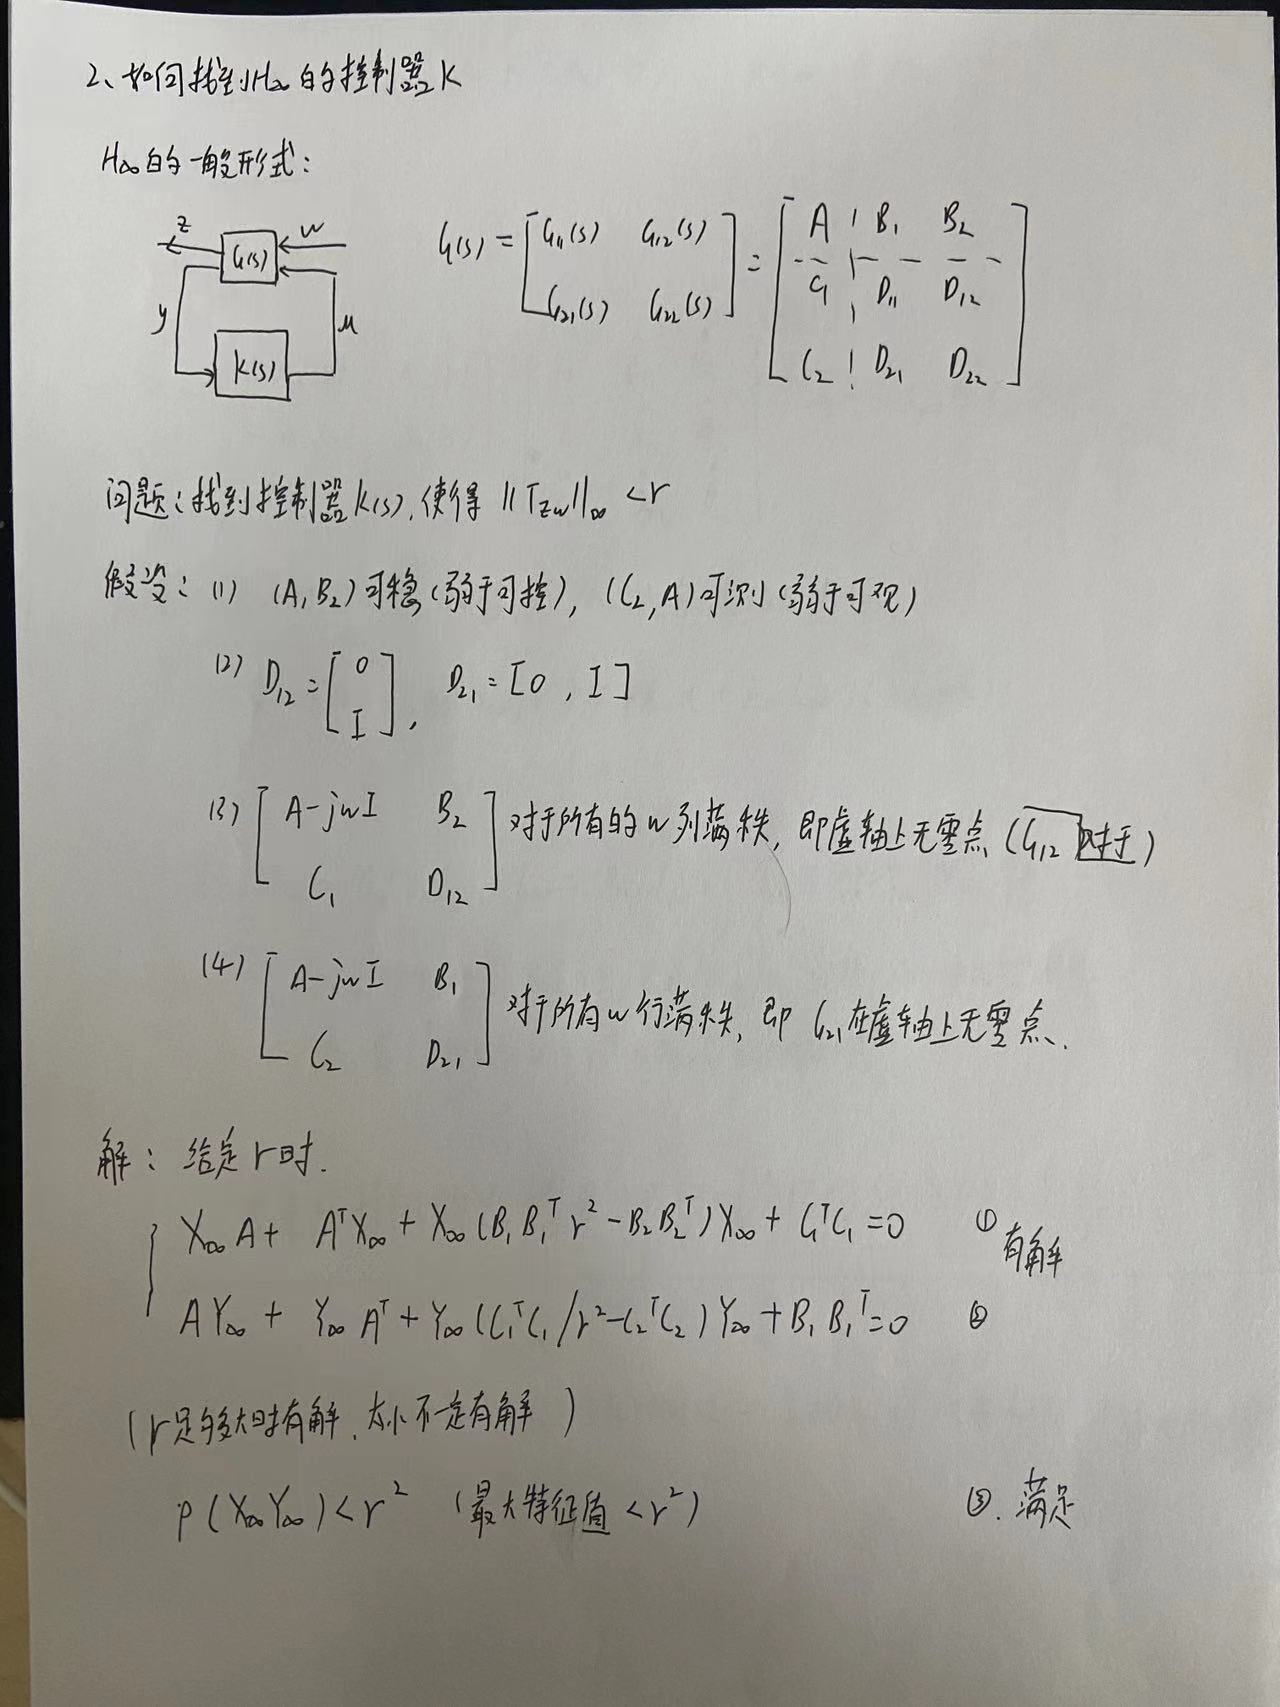 2、如何找到H∞的控制器K
H∞的一般形式:
z G(s) w
y K(s) u
G(s) = [G₁₁(s) G₁₂(s); G₂₁(s) G₂₂(s)] = [A B₁ B₂; C₁ D₁₁ D₁₂; C₂ D₂₁ D₂₂]
问题:找到控制器K(s),使得 ||Tzw||∞ < r
假设: (1) (A,B₂)可稳(弱于可控), (C₂,A)可测(弱于可观)
(2) D₁₂ = [0; I], D₂₁ = [0 , I]
(3) [A-jwI B₂; C₁ D₁₂] 对于所有的w列满秩, 即虚轴上无零点 (G₁₂ 对于)
(4) [A-jwI B₁; C₂ D₂₁] 对于所有w行满秩, 即 G₂₁在虚轴上无零点.
解: 给定r时.
X∞A + AᵀX∞ + X∞(B₁B₁ᵀr²-B₂B₂ᵀ)X∞ + C₁ᵀC₁ = 0 ① 有解
AY∞ + Y∞Aᵀ + Y∞(C₁ᵀC₁/r²-C₂ᵀC₂)Y∞ + B₁B₁ᵀ = 0 ②
(r足够大时有解, 太小不一定有解)
ρ(X∞Y∞) < r² (最大特征值 < r²) ③. 满足